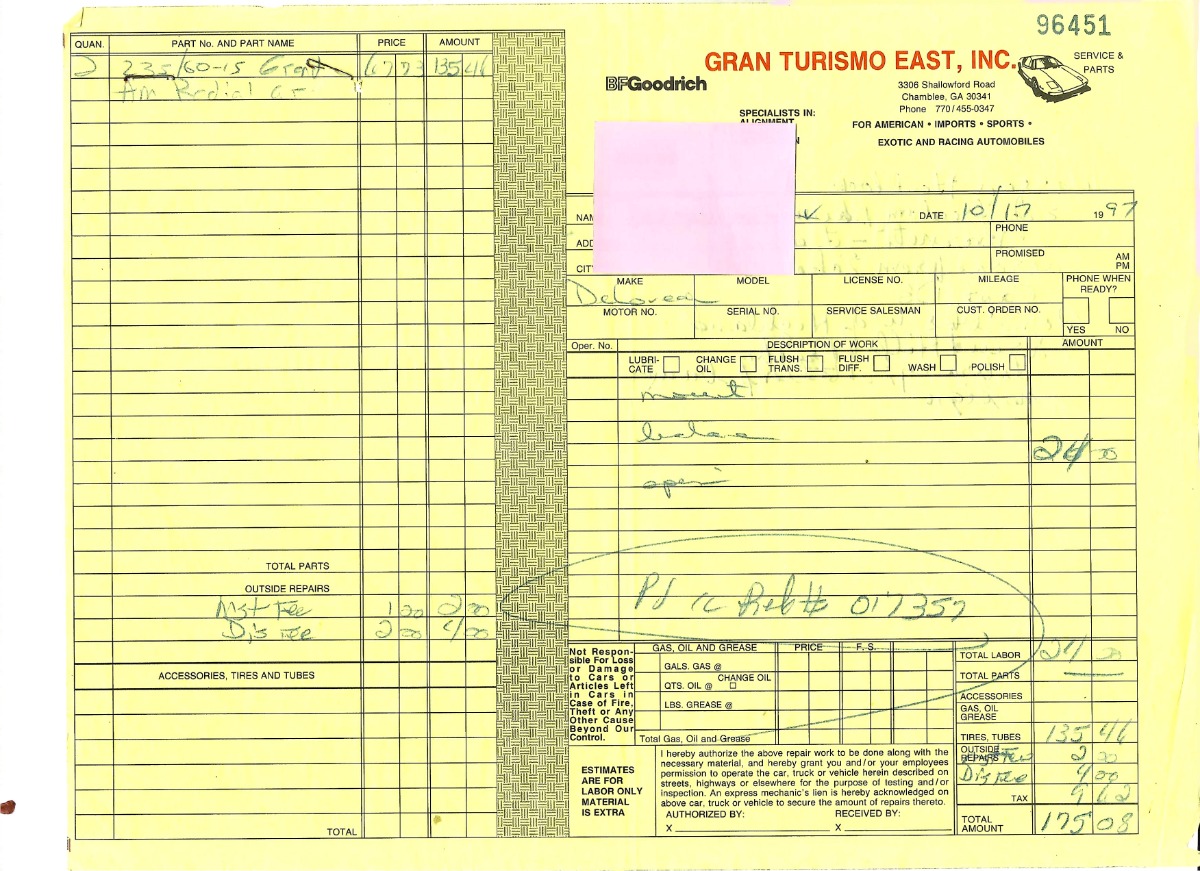 96451
GRAN TURISMO EAST, INC.
SERVICE & PARTS
BFGoodrich
3306 Shallowford Road
Chamblee, GA 30341
Phone 770/455-0347
SPECIALISTS IN:
ALIGNMENT
FOR AMERICAN • IMPORTS • SPORTS •
EXOTIC AND RACING AUTOMOBILES
QUAN. PART No. AND PART NAME PRICE AMOUNT
2 235/60-15 67 73 135 46
Radial
TOTAL PARTS
OUTSIDE REPAIRS
Mgt Fee 1 00 2 00
Dis Fee 2 00 4 00
ACCESSORIES, TIRES AND TUBES
TOTAL
DATE 10/17 1997
PHONE
CITY
PROMISED AM PM
MAKE MODEL LICENSE NO. MILEAGE PHONE WHEN READY?
Delorean
MOTOR NO. SERIAL NO. SERVICE SALESMAN CUST. ORDER NO.
YES NO
Oper. No. DESCRIPTION OF WORK AMOUNT
LUBRI-CATE CHANGE OIL FLUSH TRANS. FLUSH DIFF. WASH POLISH
mount
24 00
Pd 017357
Not Respon-
sible For Loss
or Damage
to Cars or
Articles Left
in Cars in
Case of Fire,
Theft or Any
Other Cause
Beyond Our
Control.
GAS, OIL AND GREASE PRICE F. S.
GALS. GAS @
CHANGE OIL
QTS. OIL @
LBS. GREASE @
Total Gas, Oil and Grease
ESTIMATES
ARE FOR
LABOR ONLY
MATERIAL
IS EXTRA
I hereby authorize the above repair work to be done along with the
necessary material, and hereby grant you and/or your employees
permission to operate the car, truck or vehicle herein described on
streets, highways or elsewhere for the purpose of testing and/or
inspection. An express mechanic's lien is hereby acknowledged on
above car, truck or vehicle to secure the amount of repairs thereto.
AUTHORIZED BY: RECEIVED BY:
X X
TOTAL LABOR 24 00
TOTAL PARTS
ACCESSORIES
GAS, OIL
GREASE
TIRES, TUBES 135 46
OUTSIDE REPAIRS 2 00
Dis Fee 4 00
TAX 9 62
TOTAL AMOUNT 175 08